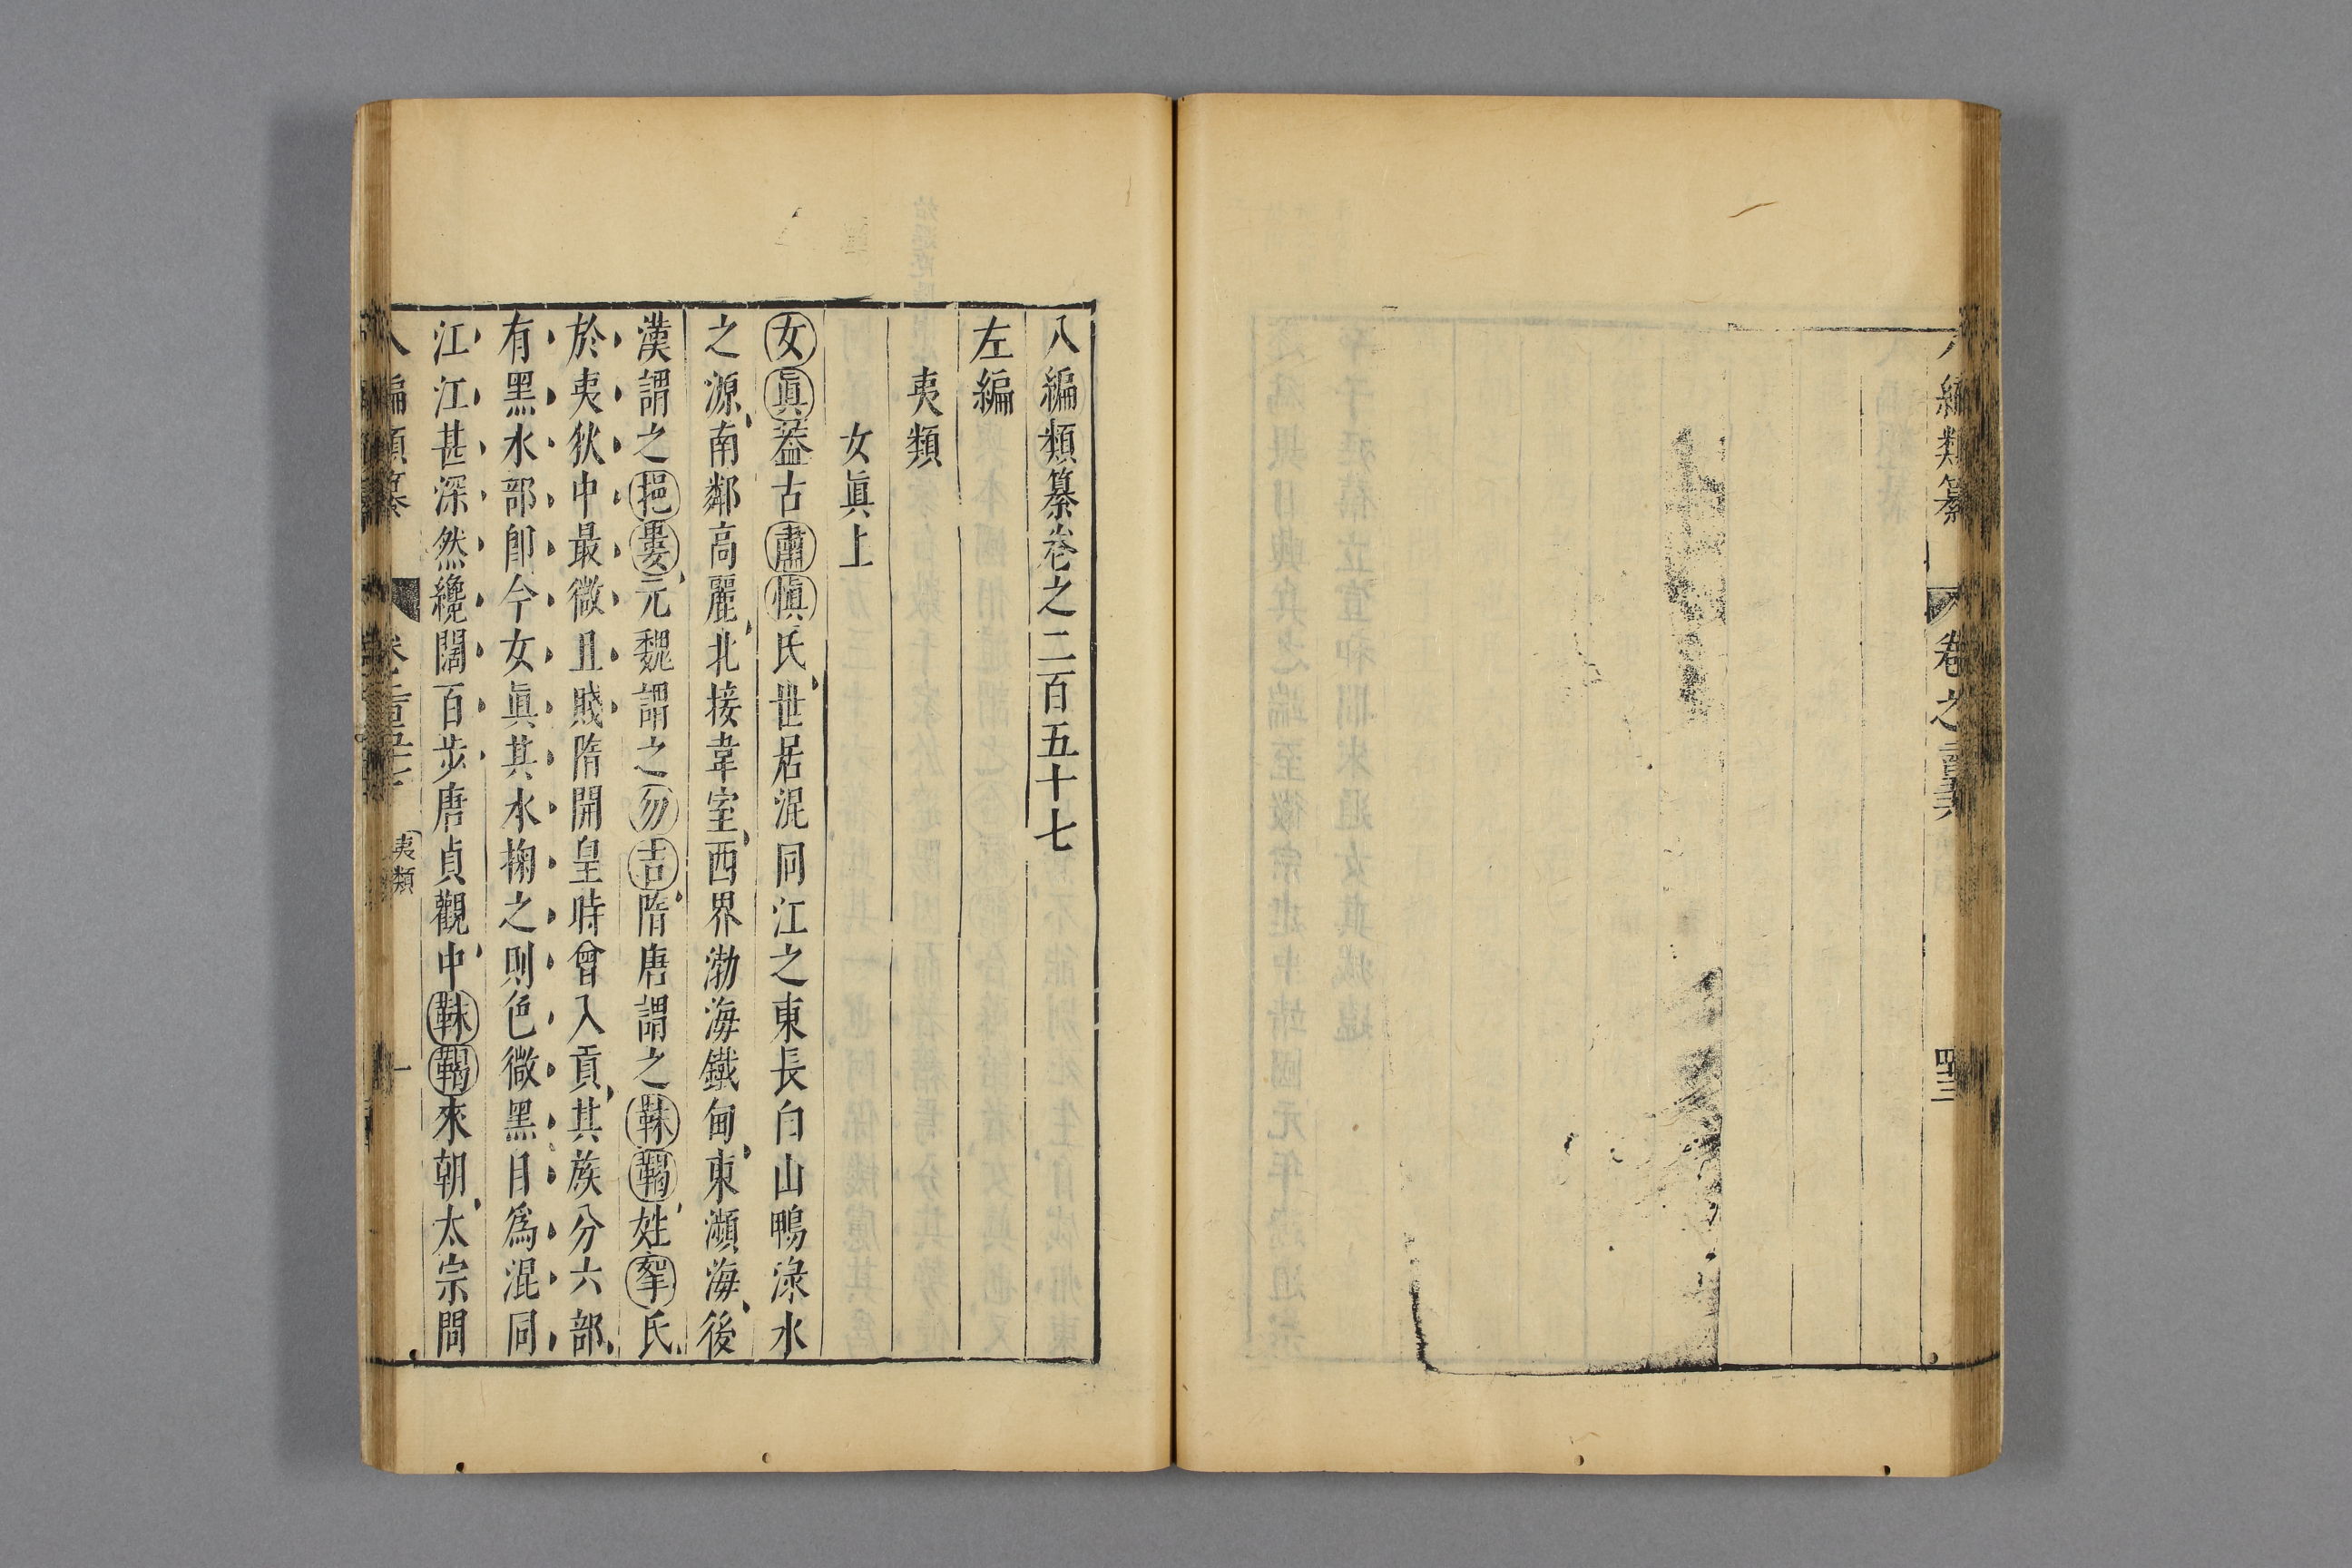 八編類纂
卷之二百五十六
四十三
八編類纂卷之二百五十七
左編
夷類
女眞上
女眞蓋古肅愼氏世居混同江之東長白山鴨淥水
之源南鄰高麗北接韋室西界渤海鐵甸東瀕海後
漢謂之挹婁元魏謂之勿吉隋唐謂之靺鞨姓挐氏
於夷狄中最微且賤隋開皇時曾入貢其族分六部
有黑水部卽今女眞其水掬之則色微黑目爲混同
江江甚深然纔闊百步唐貞觀中靺鞨來朝太宗問
八編類纂
卷之二百五十七
夷類
一